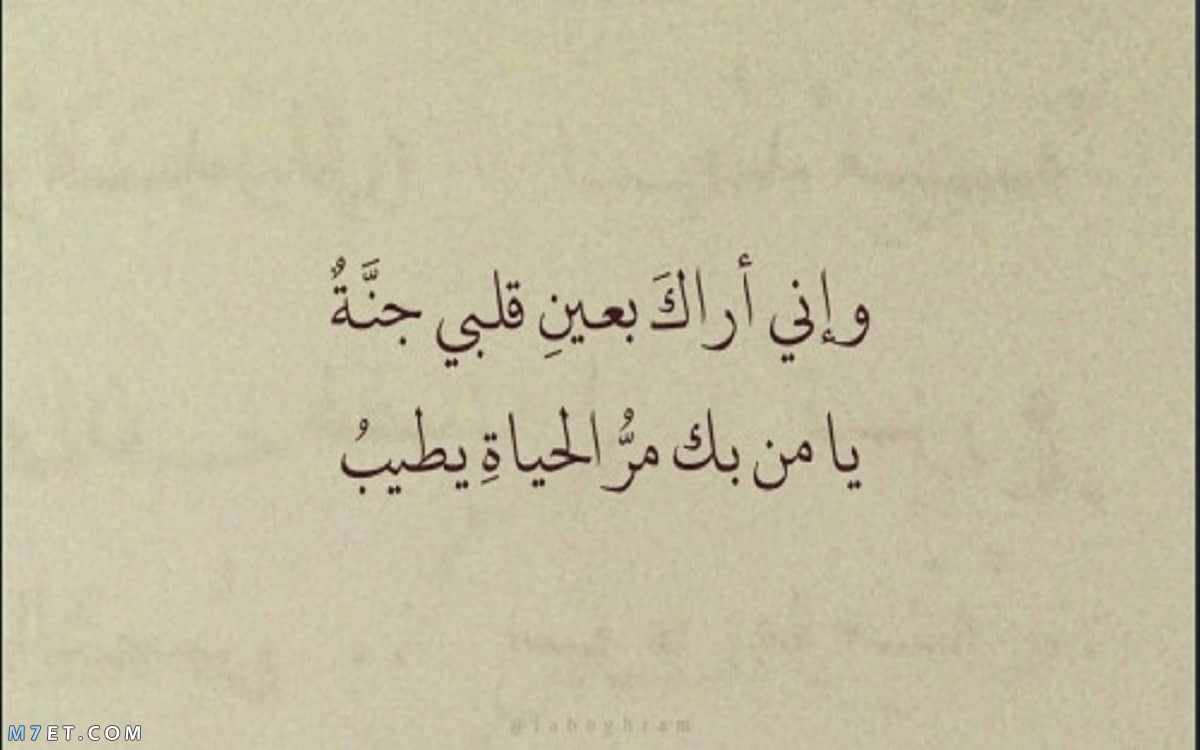 وإني أراكَ بعينِ قلبي جنَّةٌ
يا من بك مرُّ الحياةِ يطيبُ
M7ET.COM